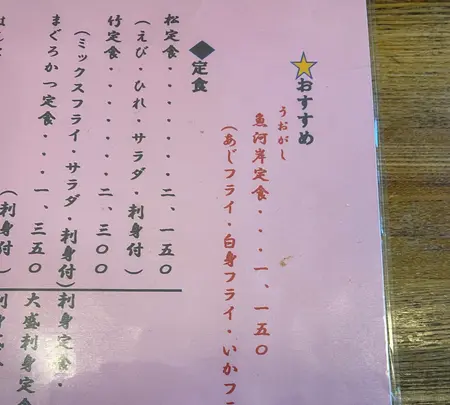 ☆おすすめ
うおがし
魚河岸定食・・・一、一五〇
(あじフライ・白身フライ・いかフラ
◆定食
松定食・・・・・・・二、一五〇
(えび・ひれ・サラダ・刺身付)
竹定食・・・・・・・二、三〇〇
(ミックスフライ・サラダ・刺身付)
まぐろかつ定食・・・一、三五〇
(刺身付)
刺身定食・
大盛刺身定食